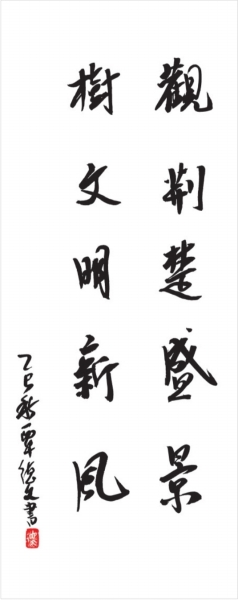 觀荆楚盛景
樹文明新風
乙巳秋覃德文書